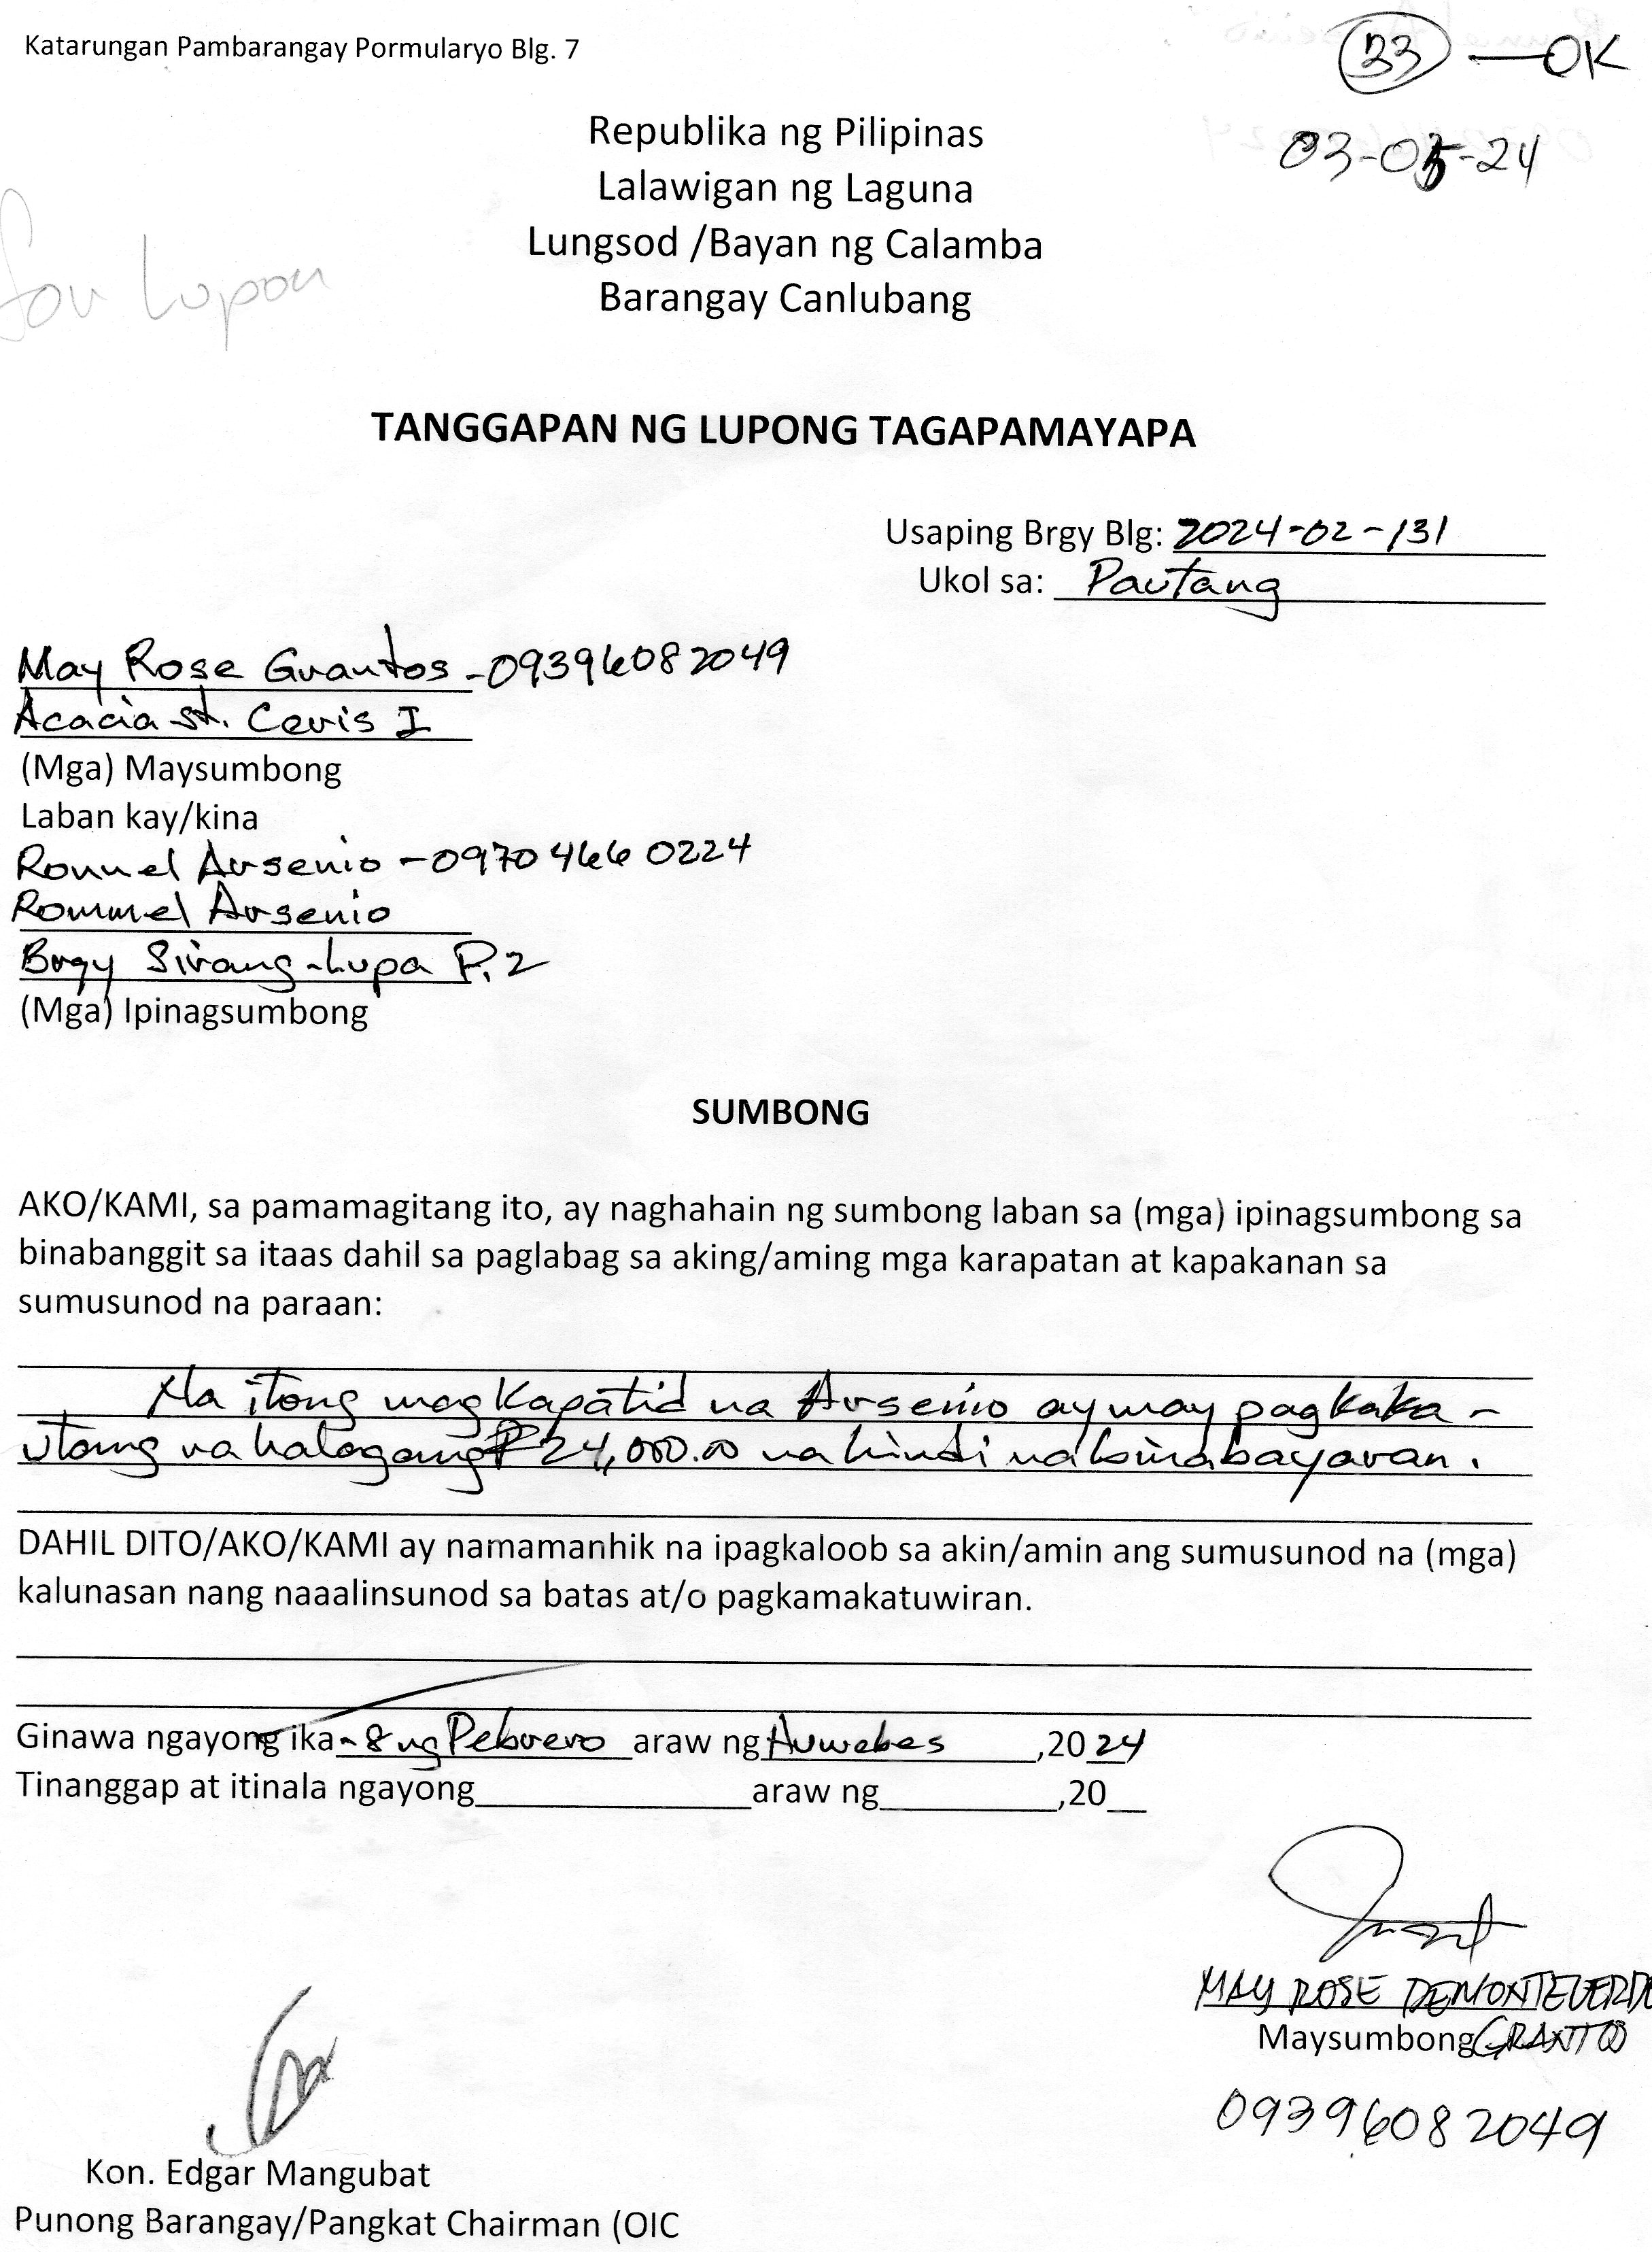 Katarungan Pambarangay Pormularyo Blg. 7
33 — OK
03-05-24
Republika ng Pilipinas
Lalawigan ng Laguna
Lungsod /Bayan ng Calamba
Barangay Canlubang
for Lupon
TANGGAPAN NG LUPONG TAGAPAMAYAPA
Usaping Brgy Blg: 2024-02-131
Ukol sa: Pautang
May Rose Guantos - 09396082049
Acacia st. Ceris I
(Mga) Maysumbong
Laban kay/kina
Ronnel Arsenio - 0970 466 0224
Rommel Arsenio
Brgy Sirang-Lupa P.2
(Mga) Ipinagsumbong
SUMBONG
AKO/KAMI, sa pamamagitang ito, ay naghahain ng sumbong laban sa (mga) ipinagsumbong sa
binabanggit sa itaas dahil sa paglabag sa aking/aming mga karapatan at kapakanan sa
sumusunod na paraan:
Na itong magkapatid na Arsenio ay may pagkaka-
utang na halagang ₱ 24,000.00 na hindi na binabayaran.
DAHIL DITO/AKO/KAMI ay namamanhik na ipagkaloob sa akin/amin ang sumusunod na (mga)
kalunasan nang naaalinsunod sa batas at/o pagkamakatuwiran.
Ginawa ngayong ika-8 ng Pebrero araw ng Huwebes ,2024
Tinanggap at itinala ngayong araw ng ,20
MAY ROSE DEMONTEVERDE
Maysumbong GRANTOS
09396082049
Kon. Edgar Mangubat
Punong Barangay/Pangkat Chairman (OIC